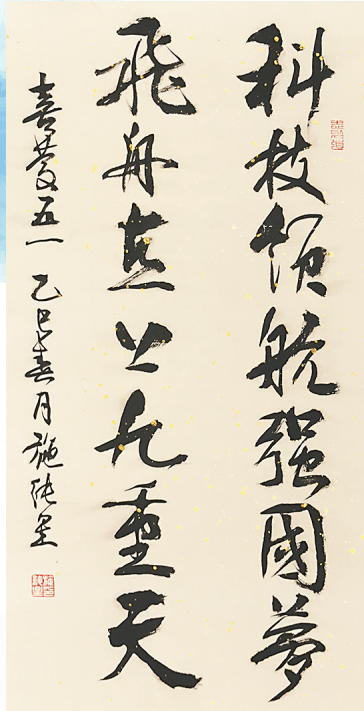 科技领航强國夢
飛舟直上九重天
喜慶五一 乙巳春月施純星